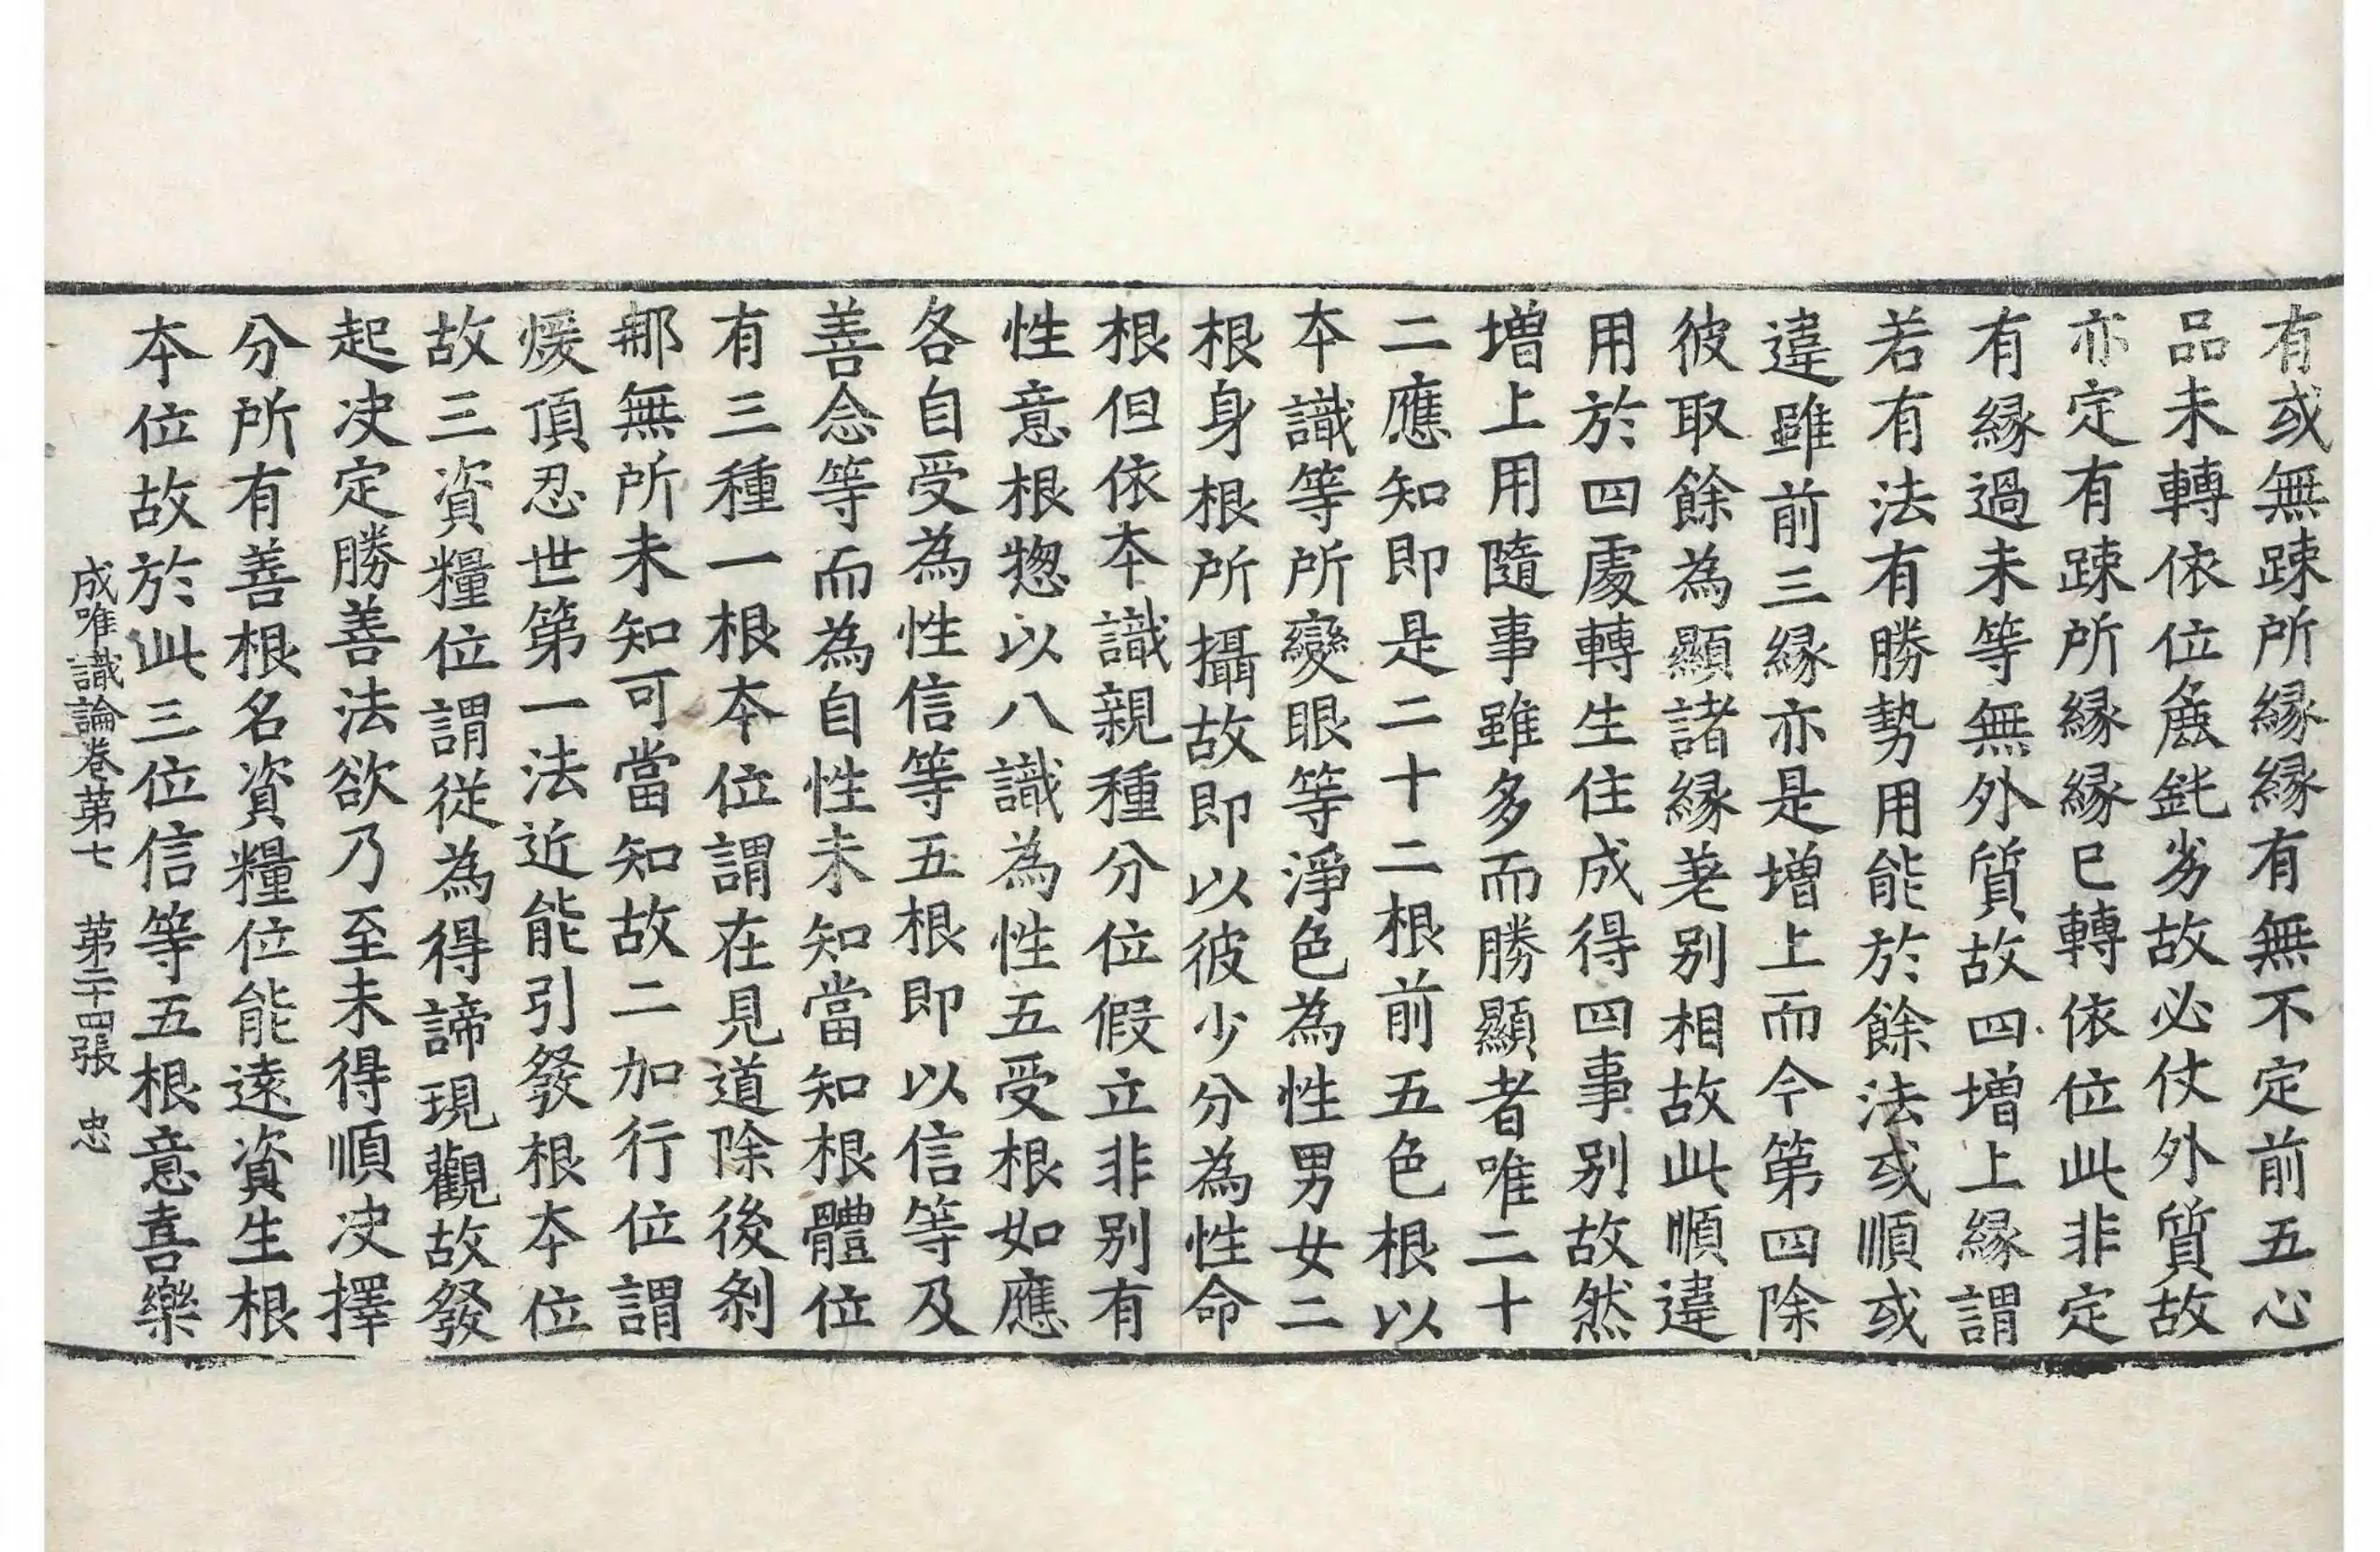 有或無踈所縁縁有無不定前五心
品未轉依位麁鈍劣故必仗外質故
亦定有踈所縁縁已轉依位此非定
有縁過未等無外質故四増上縁謂
若有法有勝勢用能於餘法或順或
違雖前三縁亦是増上而今第四除
彼取餘為顯諸縁差别相故此順違
用於四處轉生住成得四事别故然
増上用隨事雖多而勝顯者唯二十
二應知即是二十二根前五色根以
本識等所變眼等淨色為性男女二
根身根所攝故即以彼少分為性命
根但依本識親種分位假立非别有
性意根惣以八識為性五受根如應
各自受為性信等五根即以信等及
善念等而為自性未知當知根體位
有三種一根本位謂在見道除後剎
那無所未知可當知故二加行位謂
煖頂忍世第一法近能引發根本位
故三資糧位謂從為得諦現觀故發
起决定勝善法欲乃至未得順决擇
分所有善根名資糧位能遠資生根
本位故於此三位信等五根意喜樂
成唯識論卷第七　第二十四張　忠